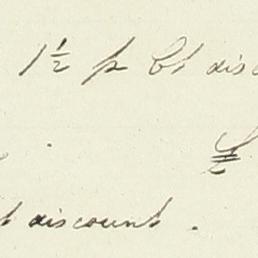 1½ p Ct disc
t discount.